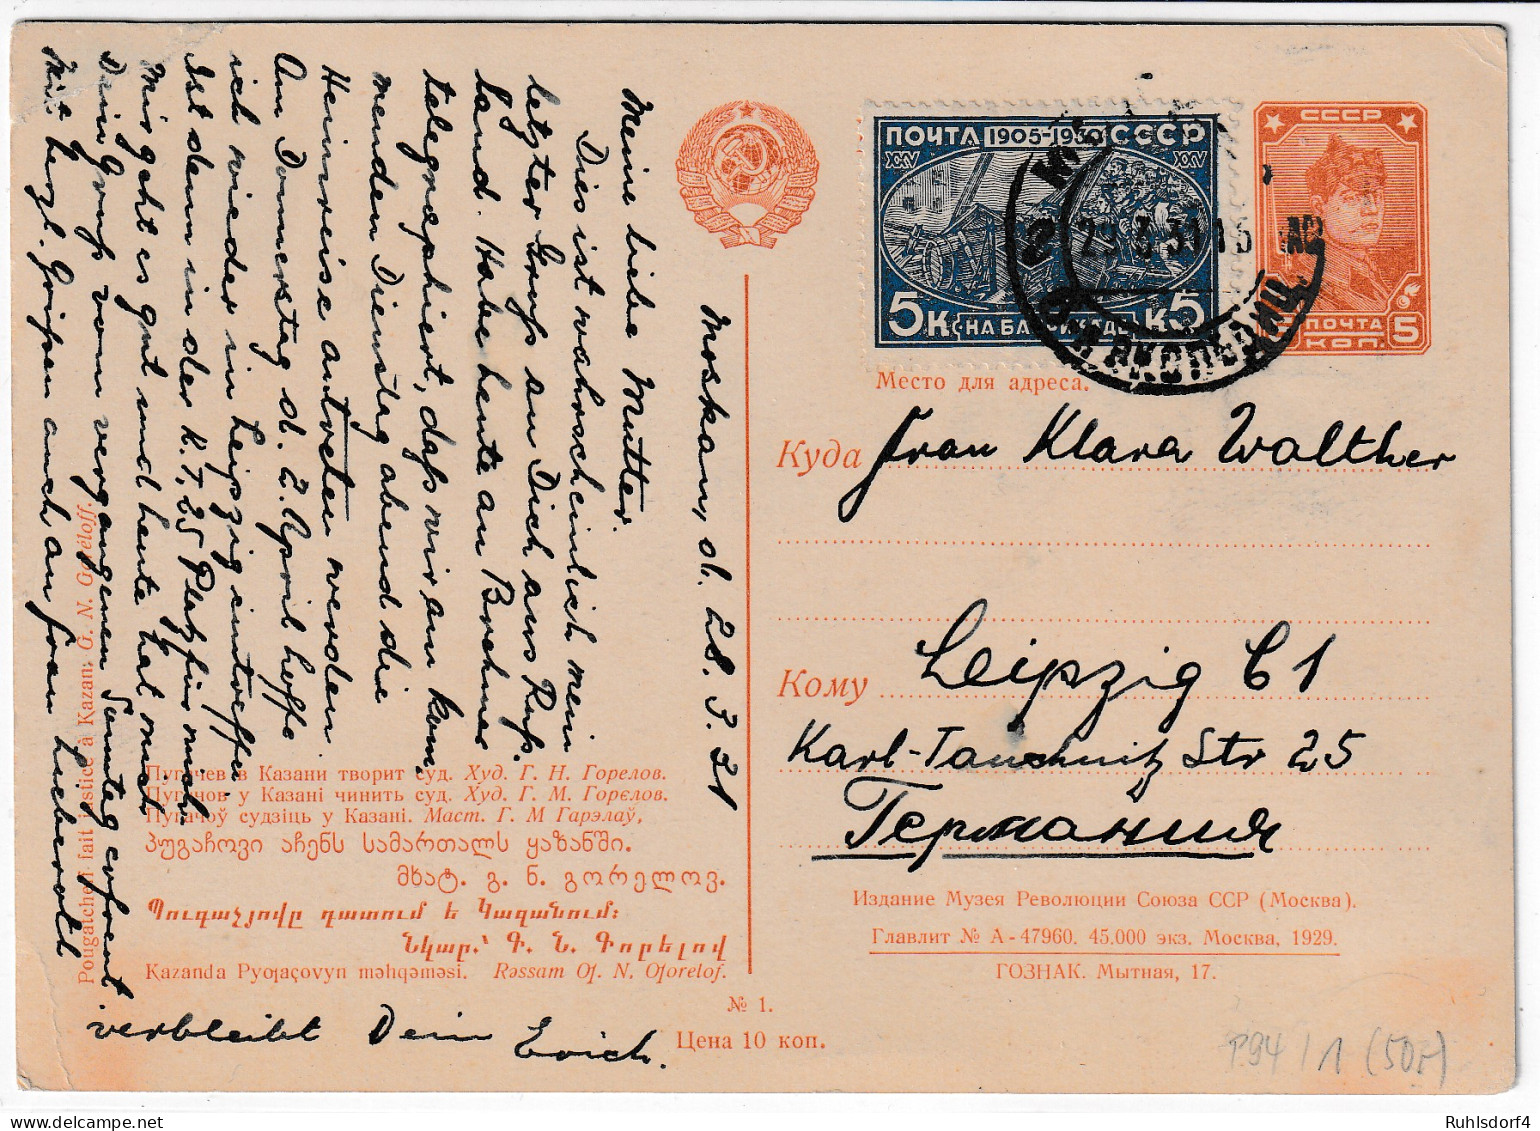 Moskau, d. 28. 3. 31
Meine liebe Mutter!
Dies ist wahrscheinlich mein
letzter Gruß an Dich aus Ruß-
land. Habe heute an Boehme
telegraphiert, daß wir am kom-
menden Dienstag abend die
Heimreise antreten werden.
Am Donnerstag d. 2. April hoffe
ich wieder in Leipzig eintreffen.
Ist denn in der K. T. 25 Platz für mich.
Mir geht es gut und heute hat mich
Dein Gruß vom vergangenen Sonntag erfreut
Mit herzl. Grüßen auch an Frau
verbleibt Dein Erich.
ПОЧТА 1905-1930 СССР
XXV XXV
5 К. НА БАРРИКАДЕ К 5
29.3.31
СССР
ПОЧТА
КОП. 5
Место для адреса.
Куда Frau Klara Walther
Кому Leipzig C1
Karl-Tauchnitz Str 25
Германия
Издание Музея Революции Союза ССР (Москва).
Главлит № А-47960. 45.000 экз. Москва, 1929.
ГОЗНАК. Мытная, 17.
Pougatcheff fait justice à Kazan; G. N. Goréloff.
Пугачев в Казани творит суд. Худ. Г. Н. Горелов.
Пугачов у Казані чинить суд. Худ. Г. М. Горєлов.
Пугачоў судзіць у Казані. Маст. Г. М Гарэлаў.
პუგაჩოვი აჩენს სამართალს ყაზანში.
მხატ. გ. ნ. გორელოვ.
Պուգաչյովը դատում է Կազանում:
Նկար.՝ Գ. Ն. Գորելով
Kazanda Pyoƣaçovyn məhqəməsi. Rəssam Oƣ. N. Oƣorelof.
№ 1.
Цена 10 коп.
P94/1 (50,-)
Ruhlsdorf4